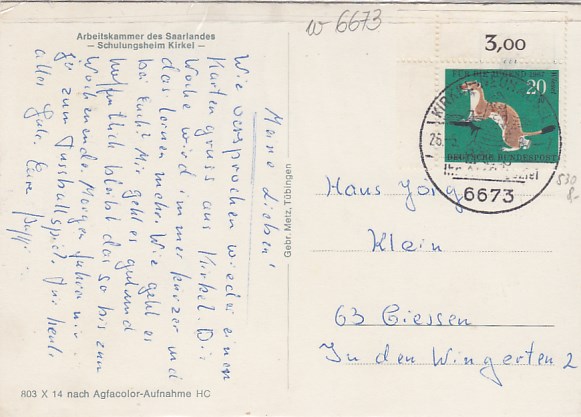 w 6673
Arbeitskammer des Saarlandes
– Schulungsheim Kirkel –
3,00
20
DEUTSCHE BUNDESPOST
6673
530
8.-
Meine Lieben!
Wie versprochen wieder einen
Kartengruss aus Kirkel. Die
Woche wird immer kürzer und
das Lernen mehr. Wie geht es
bei Euch? Mir geht es gut und
hoffentlich bleibt das so bis zum
Wochenende. Morgen fahren wir
zum Fussballspiel. Für heute
alles Gute. Eure
Gebr. Metz, Tübingen
Hans Jörg
Klein
63 Giessen
In den Wingerten 2
803 X 14 nach Agfacolor-Aufnahme HC